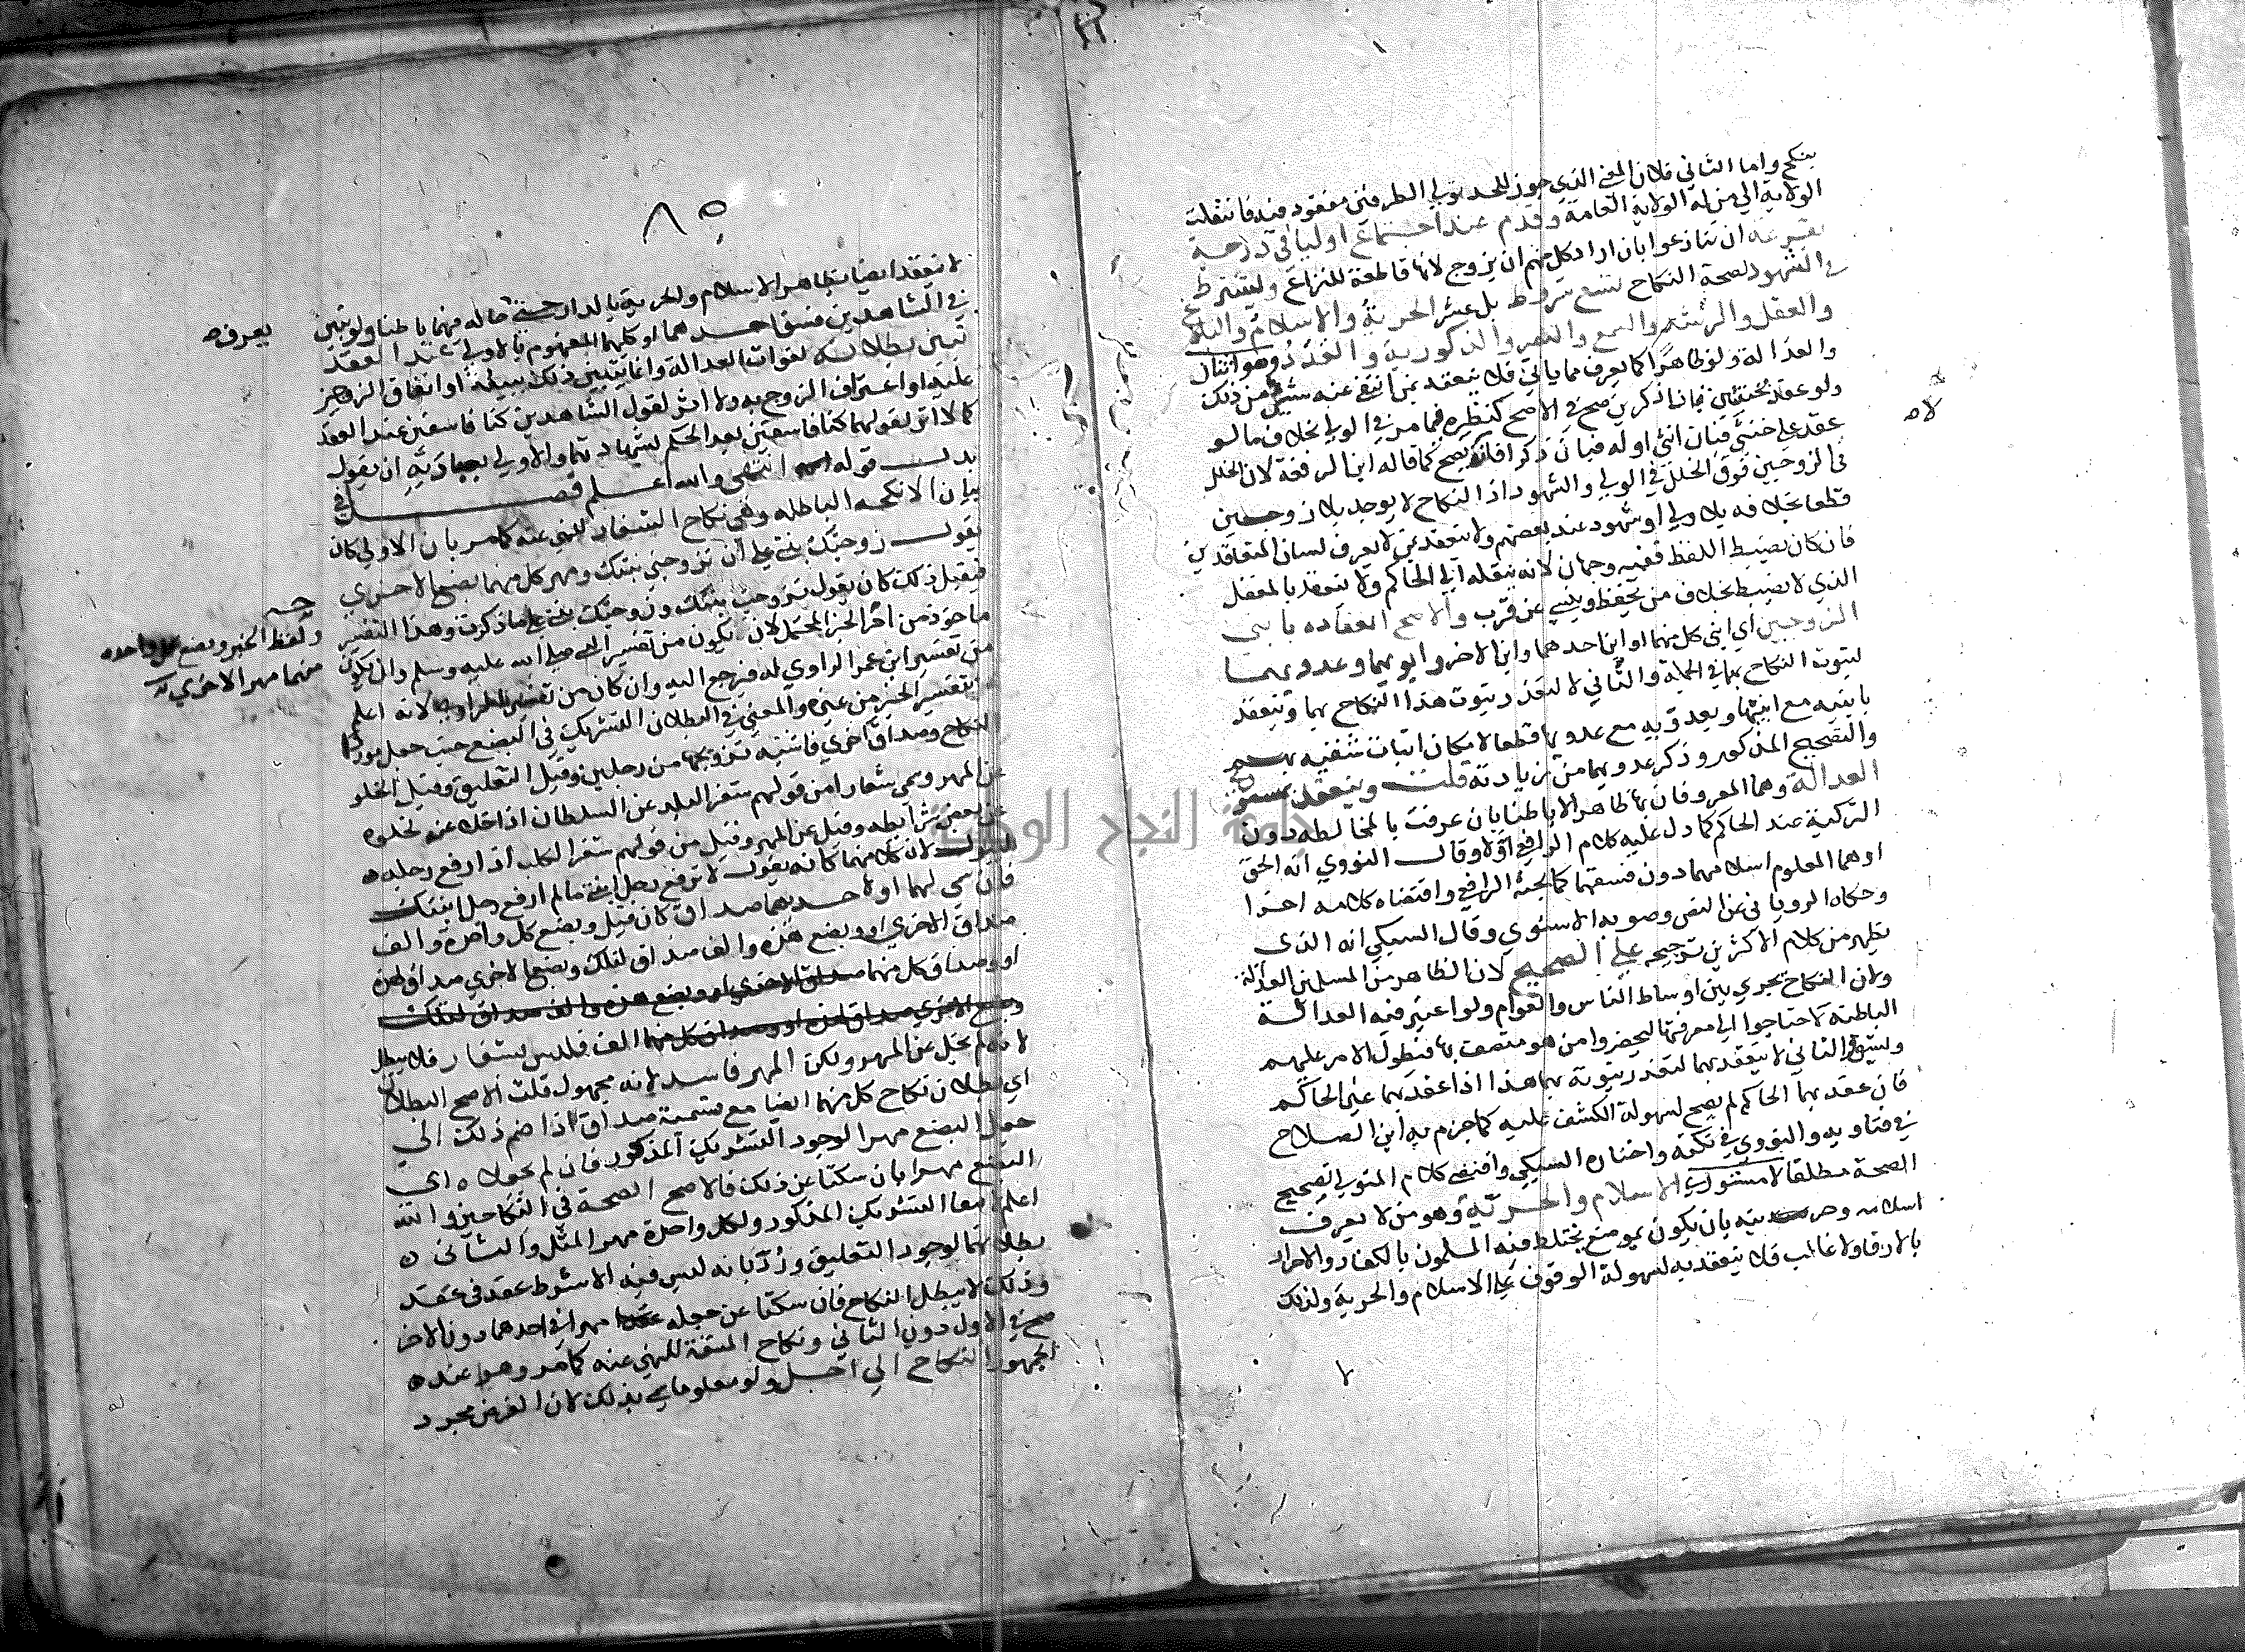 ينكح واما الثاني فلان المعنى الذي جوز للجد تولي الطرفين مفقود فيه فانتقلت
الولاية الي من له الولاية العامة وقدم عند اجتماع اوليا في درجة
بقرعة ان تنازعوا بان اراد كل منهم ان يزوج لانها قاطعة للنزاع ويشترط
في الشهود لصحة النكاح تسع شروط بل عشر الحرية والاسلام والبلوغ
والعقل والرشد والسمع والبصر والذكورية والتعدد وهو اثنان
والعدالة ولو ظاهرا كما يعرف مما ياتي فلا ينعقد بمن انتفى عنه شيء من ذلك
ولو عقد بخنثيين فبانا ذكرين صح في الاصح كنظيره فيما مر في الولي بخلاف ما لو
عقد على خنثى فبان انثى او له فبان ذكرا فانه يصح كما قاله ابن الرفعة لان الخلل
في الزوجين فوق الخلل في الولي والشهود اذ النكاح لا يوجد بلا زوجين
قطعا بخلافه بلا ولي او شهود عند بعضهم ولا ينعقد بمن لا يعرف لسان المتعاقدين
فان كان يضبط اللفظ ففيه وجهان لانه ينقله الي الحاكم ولا ينعقد بالمغفل
الذي لا يضبط بخلاف من يحفظ وينسى عن قرب والاصح انعقاده بابني
الزوجين اي ابني كل منهما او ابن احدهما وابن الاخر وابويهما وعدويهما
لثبوت النكاح بهما في الجملة والثاني لا لتعذر ثبوت هذا النكاح بهما وينعقد
بابنيه مع ابنيها وبعدويه مع عدويها قطعا لامكان اثبات شقيه بهم
والتصحيح المذكور وذكر عدويهما من زيادته قلت وينعقد بمستوري
العدالة وهما المعروفان بها ظاهرا لا باطنا بان عرفت بالمخالطه دون
التزكية عند الحاكم كما دل عليه كلام الرافعي اولا وقال النووي انه الحق
او هما المعلوم اسلامهما دون فسقهما كما بحثه الرافعي واقتضاه كلامه اخرا
وحكاه الروياني عن النص وصوبه الاسنوي وقال السبكي انه الذي
يظهر من كلام الاكثرين ترجيحه على الصحيح لان الظاهر من المسلمين العدالة
ولان النكاح يجري بين اوساط الناس والعوام ولو اعتبر فيه العدالة
الباطنة لاحتاجوا الي معرفتها ليحضروا من هو متصف بها فيطول الامر عليهم
ويشق والثاني لا ينعقد بهما لتعذر ثبوته بهما هذا اذا عقد بهما غير الحاكم
فان عقد بهما الحاكم لم يصح لسهولة الكشف عليه كما جزم به ابن الصلاح
في فتاويه والنووي في نكته واختاره السبكي واقتضى كلام المتولي تصحيح
الصحة مطلقا لا مستوري الاسلام والحرية وهو من لا يعرف
اسلامه وحريته بان يكون بموضع يختلط فيه المسلمون بالكفار والاحرار
بالارقا ولا غالب فلا ينعقد به لسهولة الوقوف على الاسلام والحرية ولذلك
لاه
جامعة النجاح الوطنية
٨٥
لا ينعقد ايضا بظاهر الاسلام والحرية بالدار حتى حاله فيهما باطنا ولو تبين
يعرف
في الشاهدين فسق احدهما او كليهما المفهوم بالاولي عند العقد
تبين بطلانه لفوات العدالة وانما يتبين ذلك ببينة او اتفاق الزوجين
عليه او اعتراف الزوج به ولا اثر لقول الشاهدين كنا فاسقين عند العقد
كما لا اثر لقولهما كنا فاسقين بعد الحكم بشهادتهما والاولي ان يقول
بدل قوله انتهى والله اعلم فصل في
بيان الانكحه الباطله وهي نكاح الشغار للنهي عنه كما مر بان الاولي كان
يقول زوجتك بنتي على ان تزوجني بنتك ومهر كل منهما بضع الاخرى
فيقبل ذلك كان يقول تزوجت بنتك وزوجتك بنتي على ما ذكرت وهذا التفسير
ماخوذ من اخر الخبر المحتمل لان يكون من تفسير النبي صلى الله عليه وسلم وان يكون
من تفسير ابن عمر الراوي له فيرجع اليه وان كان من تفسير الراوي لانه اعلم
بتفسير الخبر من غيره والمعنى في البطلان التشريك في البضع حيث جعل مورد
النكاح وصداق اخرى فاشبه تزويجها من رجلين وقيل التعليق وقيل الخلو
عن المهر وسمي شغارا من قولهم شغر البلد عن السلطان اذا خلا عنه لخلوه
عن بعض شرايطه وقيل عن المهر وقيل من قولهم شغر الكلب اذا رفع رجليه
للبول لان كلا منهما كانه يقول لا ترفع رجل ابنتي ما لم ارفع رجل ابنتك
فان سمي لهما او لاحدهما صداق كان قيل وبضع كل واحدة والف
صداق الاخرى او وبضع هذه والف صداق لتلك وبضعها لاخرى صداق لهذه
او وصداق كل منهما
الف فليس بشغار فلا يبطل
لانه لم يخل عن المهر ولكن المهر فاسد لانه مجهول قلت الاصح البطلان
اي بطلان نكاح كل منهما ايضا مع تسمية صداق اذا ضم ذلك الي
جعل البضع مهرا لوجود التشريك المذكور فان لم يجعلاه اي
البضع مهرا بان سكتا عن ذلك فالاصح الصحة في النكاحين والله
اعلم لانتفا التشريك المذكور ولكل واحدة مهر المثل والثاني
بطلانهما لوجود التعليق ورد بانه ليس فيه الا شرط عقد في عقد
وذلك لا يبطل النكاح فان سكتا عن جعله مهرا في احدهما دون الاخر
صح في الاول دون الثاني ونكاح المتعة للنهي عنه كما مر وهو عند
الجمهور النكاح الي اجل ولو معلوما سمي بذلك لان الغرض مجرد
ولفظ الخبر وبضع كل واحده
منهما مهر الاخرى